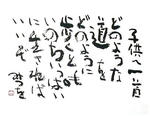 子供へ一首
どのような
道を
どのように
歩くとも
いのちいっぱい
に生きれば
いいぞ